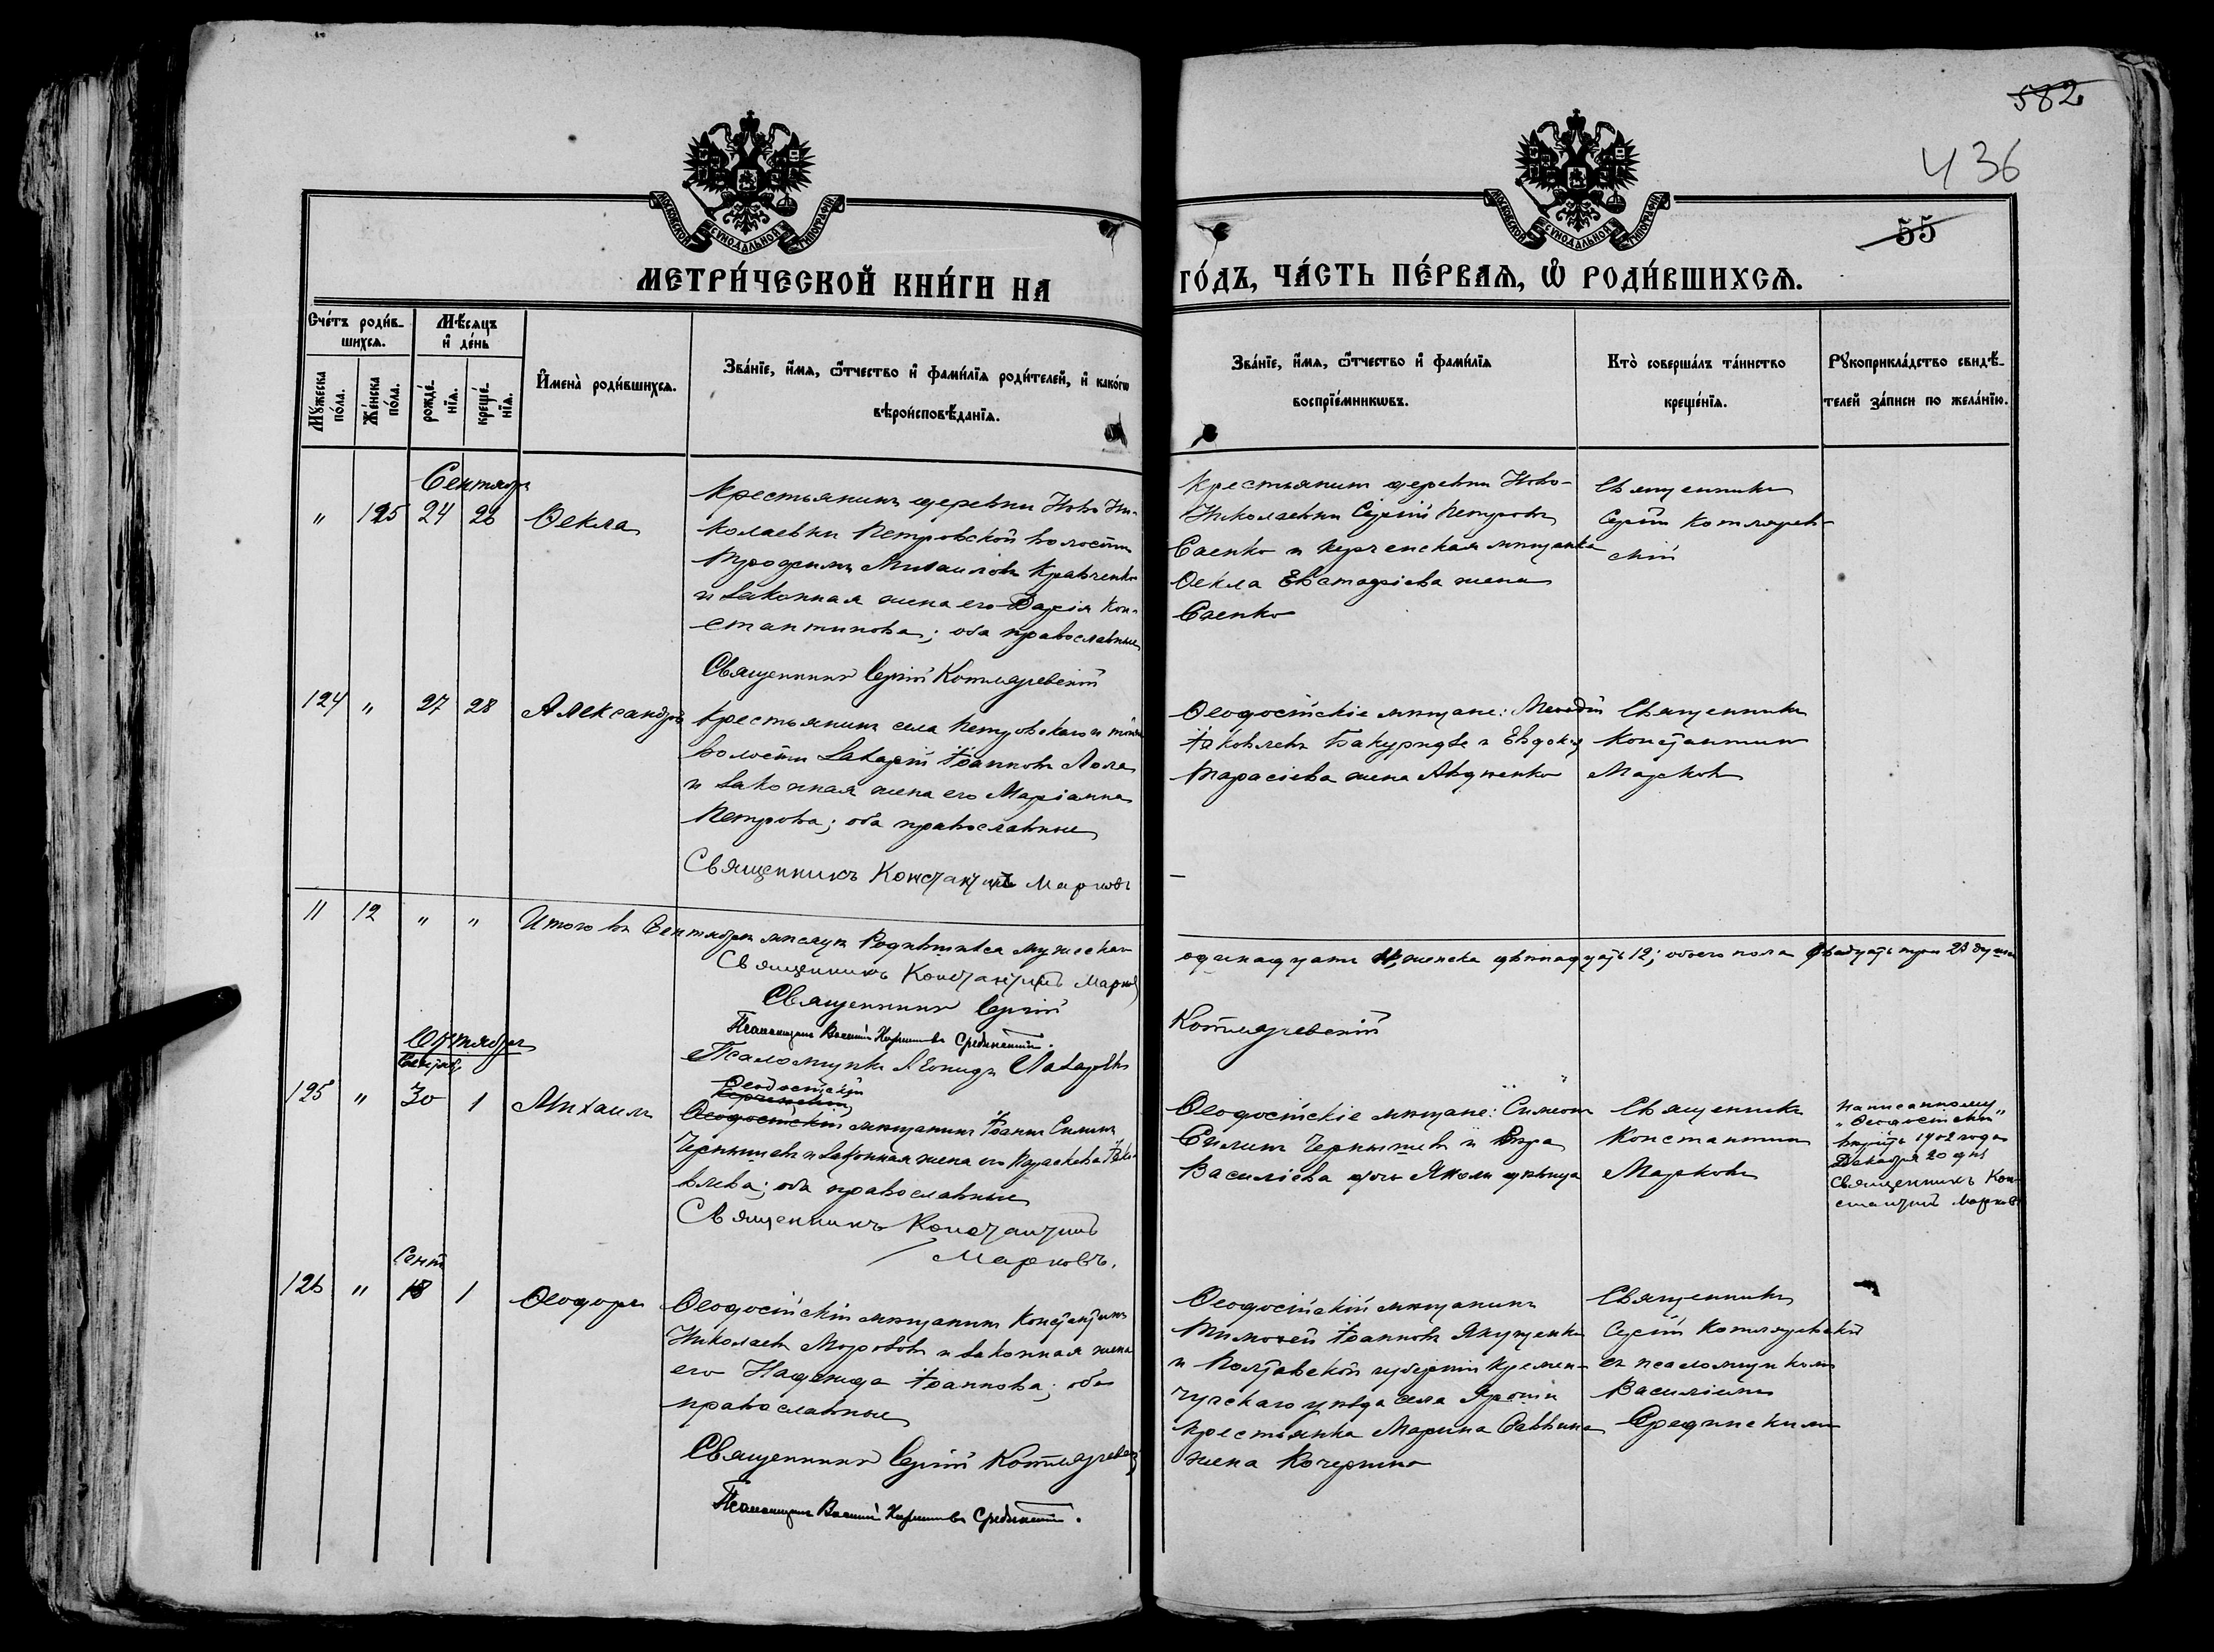 582
436
55
МОСКОВСКОЙ СѴНОДАЛЬНОЙ ТИПОГРАФІИ
МОСКОВСКОЙ СѴНОДАЛЬНОЙ ТИПОГРАФІИ
МЕТРИ́ЧЕСКОЙ КНИ́ГИ НА ГО́ДЪ, ЧА́СТЬ ПЕ́РВАѦ, Ѡ҆ РОДИ́ВШИХСѦ.
Счéтъ роди́в-
шихсѧ.
Мꙋ́жеска
по́ла.
Же́нска
по́ла.
Мѣ́сѧцъ
и҆ де́нь
рожде́-
нїѧ.
креще́-
нїѧ.
И҆мена̀ роди́вшихсѧ.
Зва́нїе, и҆́мѧ, ѻ҆́тчество и҆ фами́лїѧ роди́телей, и҆ како́гѡ
вѣроисповѣ́данїѧ.
Зва́нїе, и҆́мѧ, ѻ҆́тчество и҆ фами́лїѧ
воспрїе́мникѡвъ.
Кто̀ соверша́лъ та́инство
креще́нїѧ.
Рꙋкоприкла́дство свидѣ́-
телей за́писи по жела́нїю.
Сентябрь
" 125 24 26 Ѳекла
Крестьянинъ деревни Ново-Ни-
колаевки Петровской волости
Трофимъ Михаиловъ Кравченко
и законная жена его Дарія Кон-
стантинова; оба православные
Священникъ Сергій Котляревскій
Крестьянинъ деревни Ново-
Николаевки Сергій Петровъ
Саенко и Керченская мещанка
Ѳекла Евстафіева жена
Саенко
Священникъ
Сергій Котлярев-
скій
124 " 27 28 Александръ
Крестьянинъ села Петровскаго и тойже
волости Захарій Іоанновъ Лола
и законная жена его Маріанна
Петрова; оба православные
Священникъ Константинъ Марковъ
Ѳеодосійскіе мещане: Меѳодій
Іаковлевъ Бакуридзе и Евдокія
Тарасіева жена Авдженко
Священникъ
Константинъ
Марковъ
11 12 " " Итого въ Сентябрѣ месяцѣ Родившихся мужеска
одинадцать 11, женска двенадцать 12; обоего пола двадцать три 23 души
Священникъ Константинъ Марковъ
Священникъ Сергій Котляревскій
Псаломщикъ Василій Срединскій.
Псаломщикъ Леонидъ Лазаревъ
Октябрь
Сентябрь
125 " 30 1 Михаилъ
Ѳеодосійскій
Керченскій
Ѳеодосійскій мещанинъ Іоаннъ Силинъ
Чернышевъ и законная жена его Параскева Іако-
влева; оба православные
Священникъ Константинъ
Марковъ.
Ѳеодосійскіе мещане: Симеонъ
Силинъ Чернышевъ и Вера
Василіева дочь девица
Священникъ
Константинъ
Марковъ
Написанному
"Ѳеодосійскій"
верить 1902 года
Декабря 20 дня
Священникъ Кон-
стантинъ Марковъ
Сент
126 " 18 1 Ѳеодоръ
Ѳеодосійскій мещанинъ Константинъ
Николаевъ Морозовъ и законная жена
его Надежда Іоаннова; оба
православные
Священникъ Сергій Котляревскій
Псаломщикъ Василій Срединскій.
Ѳеодосійскій мещанинъ
Тимоѳей Іоанновъ Якущенко
и Полтавской губерніи Кремен-
чугскаго уезда села
крестьянка Марина Саввина
жена
Священникъ
Сергій Котляревскій
съ псаломщикомъ
Василіемъ
Срединскимъ